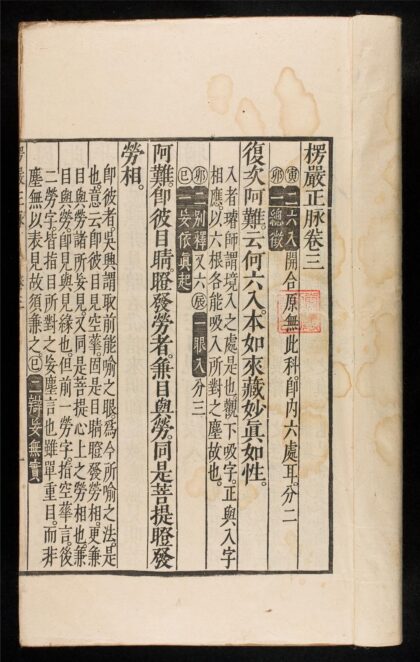 楞嚴正脉卷三
寅二六入開合原無此科即內六處耳分二
卯一總徵
復次阿難。云何六入。本如來藏妙眞如性。
入者璿師謂境入之處是也觀下吸字。正與入字
相應。以六根各能吸入所對之塵故也。
卯二別釋又六辰一眼入分三
巳一妄依眞起
阿難。即彼目睛。瞪發勞者。兼目與勞。同是菩提瞪發
勞相。
即彼者。吳興謂取前能喻之眼。爲今所喻之法。是
也。意云即彼目見空華固是目睛瞪發勞相。更兼
目與勞諸所妄見。又同是菩提心上之勞相也。兼
目與勞。即見與見緣也。但前一勞字指空華言。後
二勞字。皆指目所對之妄塵言也。雖單重目。而非
塵無以表見。故須兼之。巳二辯妄無實